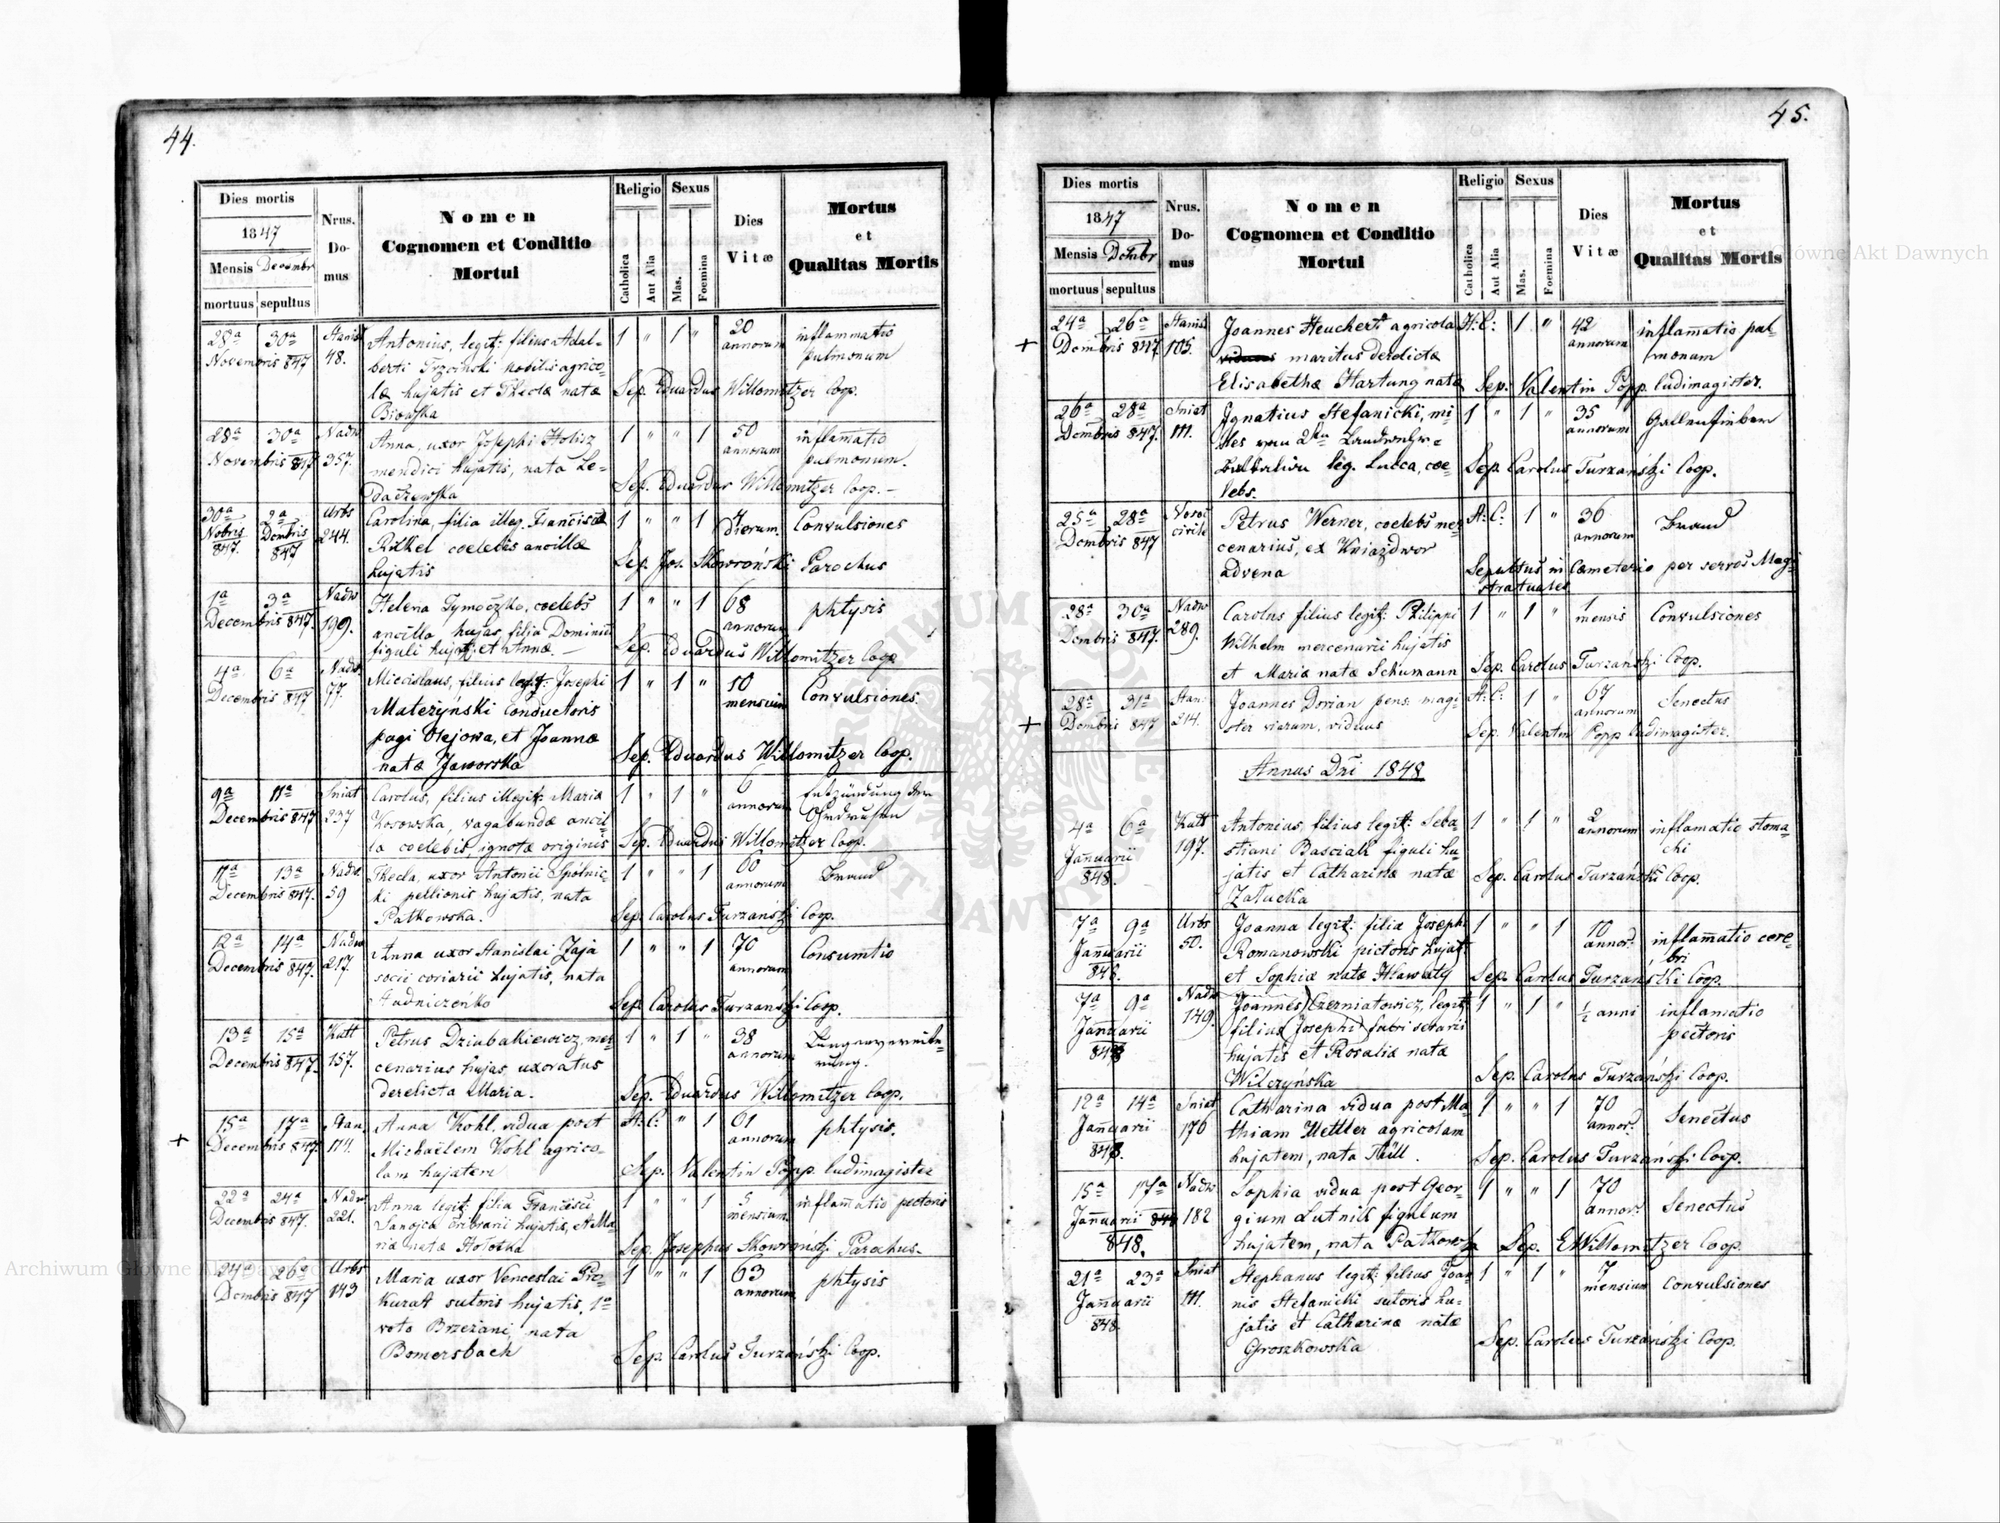 44.
Dies mortis
1847
Mensis Decembr
mortuus sepultus
Nrus.
Do-
mus
Nomen
Cognomen et Conditio
Mortui
Religio
Catholica
Aut Alia
Sexus
Mas.
Foemina
Dies
Vitæ
Mortus
et
Qualitas Mortis
28a 30a
Novembris 847
48.
Antonius, legit: filius Adal-
berti Trzciński nobilis agrico-
læ hujatis et Theclæ natæ
1 " 1 "
20
annorum
inflammatio
pulmonum
Sep. Eduardus Willomitzer Coop.
28a 30a
Novembris 847
Nadw
357.
Anna, uxor Josephi Holisz
mendici hujatis, nata Le-
1 " " 1
50
annorum
inflam̄atio
pulmonum.
Sep. Eduardus Willomitzer Coop. –
30a 2a
Nobris Dembris
847. 847
Urbs
244.
Carolina, filia illeg. Franciscæ
coelebis ancillæ
hujatis
1 " " 1
4
dierum.
Convulsiones
Sep. Jos. Skowroński Parochus
1a 3a
Decembris 847.
Nadw
199.
Helena Tymoczko, coelebs
ancilla hujas, filia Dominici
figuli hujat: et Annæ –
1 " " 1
68
annorum
phtysis
Sep. Eduardus Willomitzer Coop
4a 6a
Decembris 847
Nadw
77.
Miecislaus, filius legit: Josephi
Mateżynski Conductoris
pagi Olejowa, et Joannæ
natæ Jaworska
1 " 1 "
10
mensium
Convulsiones.
Sep. Eduardus Willomitzer Coop.
9a 11a
Decembris 847
Sniat
237
Carolus, filius illegit: Maria
Kosowska, vagabundæ ancil-
la coelebis, ignotæ originis
1 " 1 "
6
annorum
Entzündung der
Ohrdrüsen
Sep. Eduardus Willomitzer Coop.
11a 13a
Decembris 847.
Nadw
59
Thecla, uxor Antonii Spotnic-
ki pellionis hujatis, nata
Patkowska.
1 " " 1
60
annorum
Brand
Sep. Carolus Turzański Coop.
12a 14a
Decembris 847.
Nadw
217.
Anna uxor Stanislai Zaja
socii coriarii hujatis, nata
Hudniczeńko
1 " " 1
70
annorum
Consumtio
Sep. Carolus Turzanski Coop.
13a 15a
Decembris 847.
Kutt
157.
Petrus Dziubakiewicz, mer-
cenarius hujas, uxoratus
derelicta Maria.
1 " 1 "
38
annorum
Sep. Eduardus Willomitzer Coop.
+
15a 17a
Decembris 847.
Stan.
174.
Anna Kohl. vidua post
Michaëlem Kohl agrico-
lam hujatem
A: C: " 1
61
annorum
phtysis.
Sep. Valentin Popp. ludimagister
22a 24a
Decembris 847.
Nadw
221.
Anna legit. filia Francisci
Sanojca cribrarii hujatis, et Ma-
riæ natæ Hołotka
1 " " 1
5
mensium.
inflam̄atio pectoris
Sep. Josephus Skowroński Parochus.
24a 26a
Dembris 847
Urbs
143
Maria uxor Venceslai Pro-
kurat sutoris hujatis, 1o
voto Brzezani, nata
Bomersbach
1 " " 1
63
annorum
phtysis
Sep. Carolus Turzański Coop.
45.
Dies mortis
1847
Mensis Dembr
mortuus sepultus
Nrus.
Do-
mus
Nomen
Cognomen et Conditio
Mortui
Religio
Catholica
Aut Alia
Sexus
Mas.
Foemina
Dies
Vitæ
Mortus
et
Qualitas Mortis
+
24a 26a
Dembris 847
Stanisl
105.
Joannes Heuchert agricola
maritus derelictæ
Elisabethæ Hartung natæ
A: C: 1 "
42
annorum
inflam̄atio pul-
monum
Sep: Valentin Popp. ludimagister.
26a 28a
Dembris 847.
Sniat
111.
Ignatius Stefanicki, mi-
les vom 2ten Landwehr-
Battalion leg. Lucca, coe-
lebs.
1 " 1 "
35
annorum
Gallenfieber
Sep. Carolus Turzański Coop.
25a 28a
Dembris 847
Petrus Werner, coelebs mer-
cenarius, ex Kniazdwor
advena
A: C: 1 "
36
annorum
Brand
Sepultus in Cemeterio per servos Magi-
stratuales
28a 30a
Dembris 847.
Nadw
289.
Carolus filius legit: Philippi
Wilhelm mercenarii hujatis
et Mariæ natæ Schumann
1 " 1 "
1
mensis
Convulsiones
Sep. Carolus Turzański Coop.
+
28a 31a
Dembris 847
Stan.
214.
Joannes Dorian pens: magi-
ster viarum, viduus
A: C: 1 "
67
annorum
Senectus
Sep. Valentin Popp ludimagister.
Annus Dn̄i 1848
4a 6a
Januarii
848.
Kutt
197.
Antonius, filius legit: Seba-
stiani Basciak figuli hu-
jatis et Catharinæ natæ
Załucka
1 " 1 "
2
annorum
inflamatio stoma-
chi
Sep. Carolus Turzański Coop.
7a 9a
Januarii
848.
Urbs
50.
Joanna legit: filia Josephi
Romanowski pictoris hujat:
et Sophiæ natæ Hławaty
1 " " 1
10
annor.
inflam̄atio cere-
bri
Sep. Carolus Turzański Coop.
7a 9a
Januarii
848
Nadw
149.
Joannes Czerniatowicz, legit:
filius Josephi fabri serarii
hujatis et Rosaliæ natæ
Wilczyńska
1 " 1 "
½ anni
inflamatio
pectoris
Sep. Carolus Turzański Coop.
12a 14a
Januarii
848.
Sniat
176
Catharina vidua post Ma-
thiam Mettler agricolam
hujatem, nata Rüll.
1 " " 1
70
annor.
Senectus
Sep. Carolus Turzański Coop.
15a 17a
Januarii
848.
Nadw
182
Sophia vidua post Geor-
gium Lutnik figulum
hujatem, nata Patkowska
1 " " 1
70
annor.
Senectus
Sep. E Willomitzer Coop.
21a 23a
Januarii
848.
Sniat
111.
Stephanus legit: filius Joan-
nis Stefanicki sutoris hu-
jatis et Catharinæ natæ
Groszkowska
1 " 1 "
7
mensium
Convulsiones
Sep. Carolus Turzański Coop.
Archiwum Główne Akt Dawnych
Archiwum Główne Akt Dawnych
ARCHIWUM GŁÓWNE AKT DAWNYCH